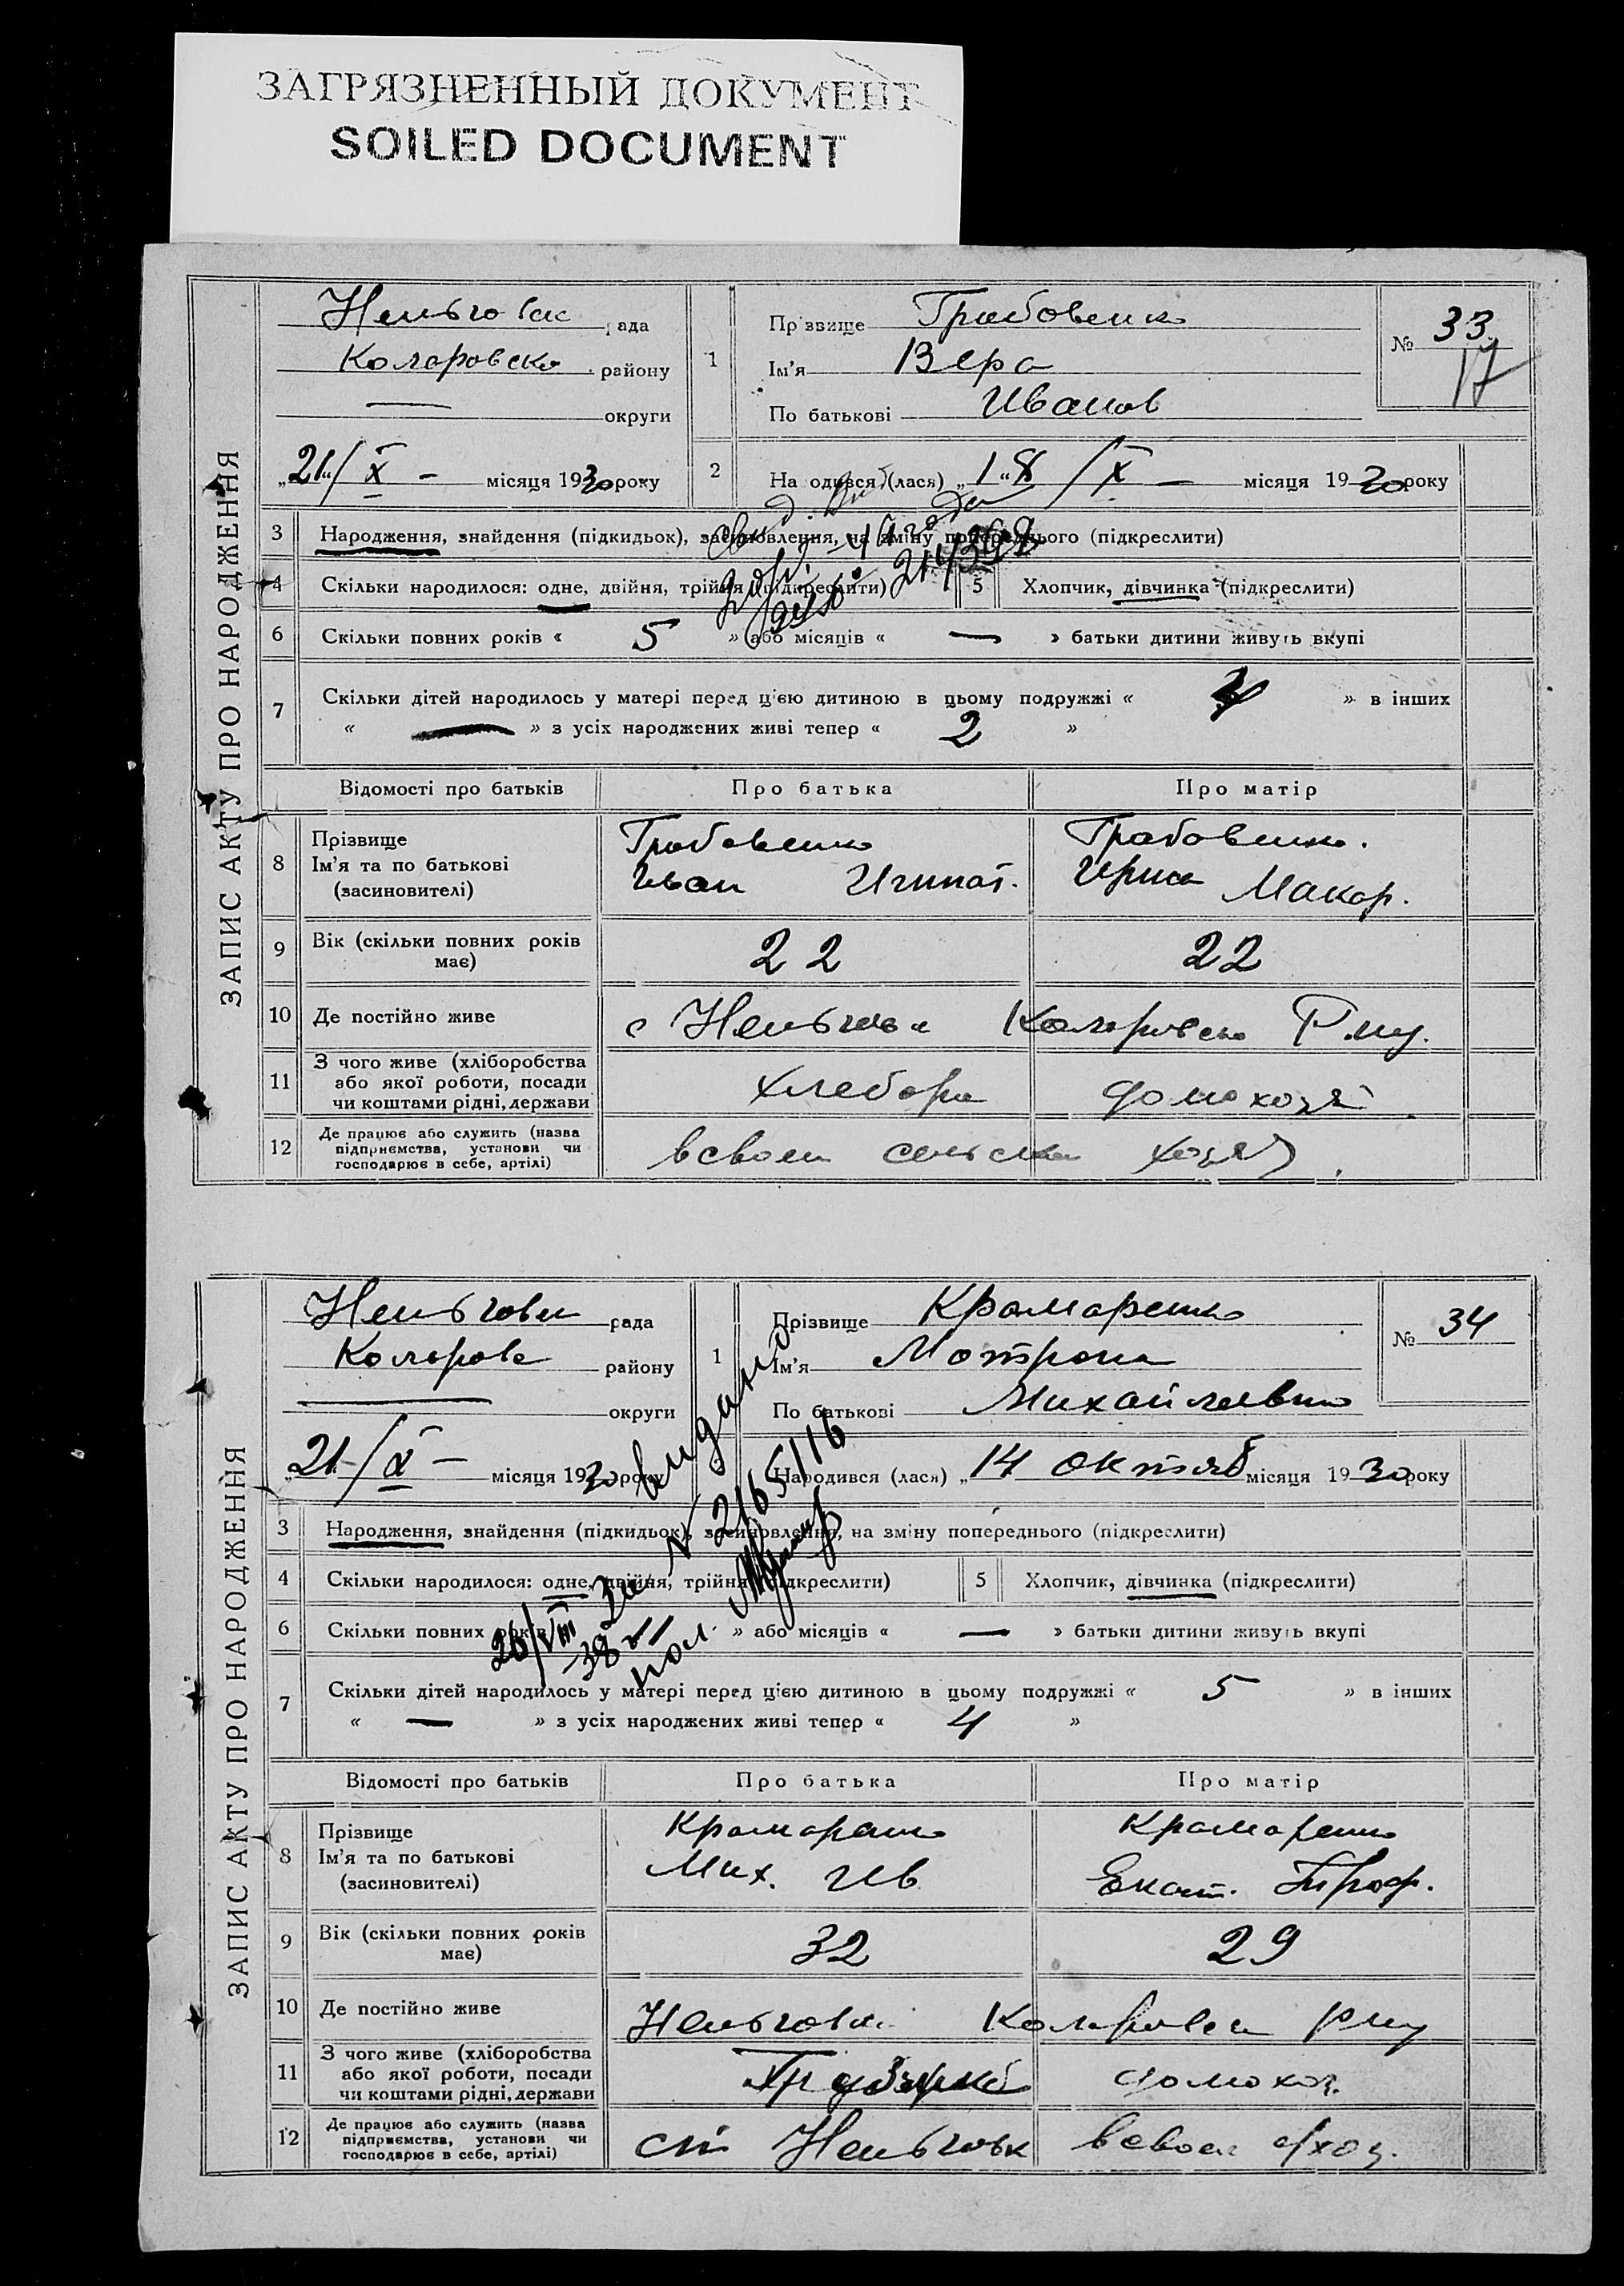 ЗАГРЯЗНЕННЫЙ ДОКУМЕНТ
SOILED DOCUMENT
ЗАПИС АКТУ ПРО НАРОДЖЕННЯ
рада
району
округи
21/X — місяця 1930 року
1
Прізвище Грабовенко
Ім'я Вера
По батькові Иванов
№ 33
17
2 Народився (лася) „18/X — місяця 1930 року
3 Народження, знайдення (підкидьок), засиновлення, на зміну попереднього (підкреслити)
4 Скільки народилося: одне, двійня, трійня (підкреслити) 5 Хлопчик, дівчинка (підкреслити)
6 Скільки повних років « 5 » або місяців « — » батьки дитини живуть вкупі
7 Скільки дітей народилось у матері перед цією дитиною в цьому подружжі « » в інших
« — » з усіх народжених живі тепер « 2 »
Відомості про батьків Про батька Про матір
8 Прізвище
Ім'я та по батькові
(засиновителі)
Грабовенко
Иван Игнат.
Грабовенко.
Ирина Макар.
9 Вік (скільки повних років має) 22 22
10 Де постійно живе с
11 З чого живе (хліборобства
або якої роботи, посади
чи коштами рідні, держави
хлебороб домохозяй
12 Де працює або служить (назва
підприємства, установи чи
господарює в себе, артілі)
в своем сельском хозяй
ЗАПИС АКТУ ПРО НАРОДЖЕННЯ
рада
району
округи
21/X — місяця 1930 року
1
Прізвище Крамаренко
Ім'я Мотрона
По батькові Михайловна
№ 34
2 Народився (лася) „14 октяб місяця 1930 року
видано
№ 2165116
26/VIII
38
3 Народження, знайдення (підкидьок), засиновлення, на зміну попереднього (підкреслити)
4 Скільки народилося: одне, двійня, трійня (підкреслити) 5 Хлопчик, дівчинка (підкреслити)
6 Скільки повних років » або місяців « — » батьки дитини живуть вкупі
7 Скільки дітей народилось у матері перед цією дитиною в цьому подружжі « 5 » в інших
« — » з усіх народжених живі тепер « 4 »
Відомості про батьків Про батька Про матір
8 Прізвище
Ім'я та по батькові
(засиновителі)
Крамаренко
Мих. Ив
Крамаренко
Екат. Троф.
9 Вік (скільки повних років має) 32 29
10 Де постійно живе
11 З чого живе (хліборобства
або якої роботи, посади
чи коштами рідні, держави
домохоз.
12 Де працює або служить (назва
підприємства, установи чи
господарює в себе, артілі)
в своем с/хоз.